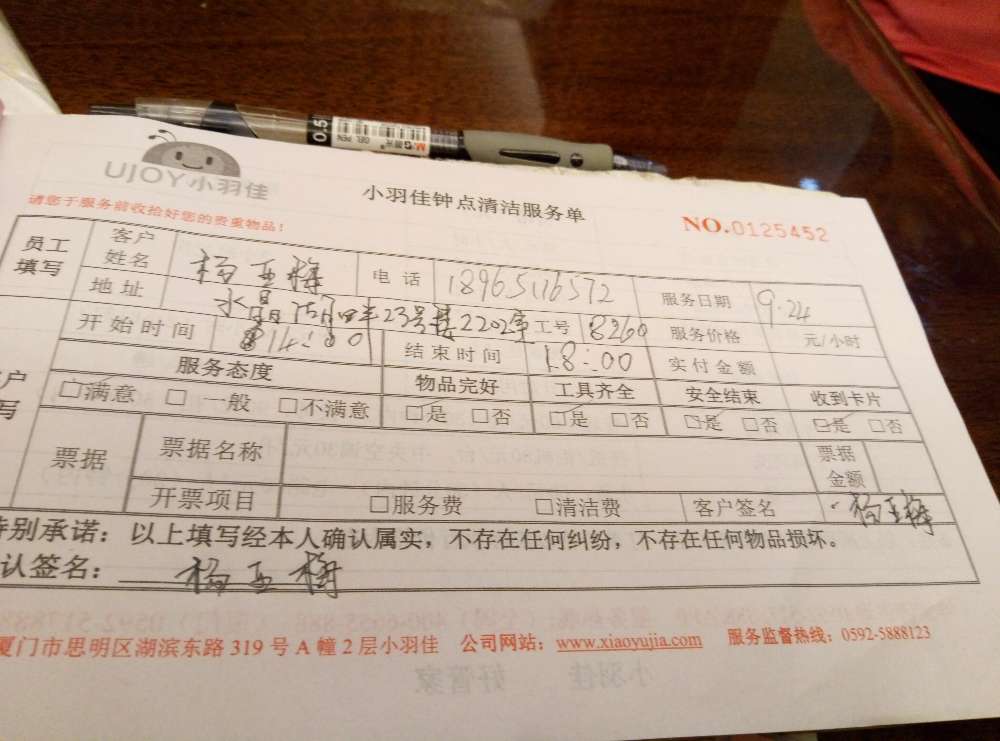 0.5
GEL PEN
UJOY小羽佳
小羽佳钟点清洁服务单
NO.0125452
请您于服务前收拾好您的贵重物品!
员工填写 客户姓名 杨亚梅 电话 18965116572 服务日期 9.24
地址 水晶湖23号楼2202 工号 8260 服务价格 元/小时
开始时间 14:00 结束时间 18:00 实付金额
服务态度 物品完好 工具齐全 安全结束 收到卡片
□满意 □一般 □不满意 □是 □否 □是 □否 □是 □否 □是 □否
票据 票据名称 票据金额
开票项目 □服务费 □清洁费 客户签名 杨亚梅
特别承诺:以上填写经本人确认属实,不存在任何纠纷,不存在任何物品损坏。
认签名: 杨亚梅
厦门市思明区湖滨东路 319 号 A 幢 2 层小羽佳 公司网站:www.xiaoyujia.com 服务监督热线:0592-5888123